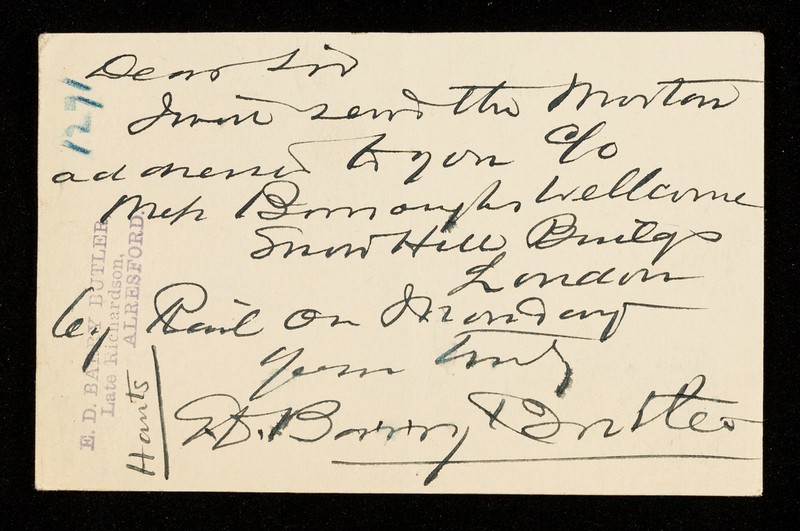 Dear Sir
I will send the Mortar
addressed to you c/o
Mess Burroughs Wellcome
Snow Hill Buildgs
London
by Rail on Monday
Yours truly
E D. Barry Butler
1271
E. D. BARRY BUTLER,
Late Richardson,
ALRESFORD.
Hants